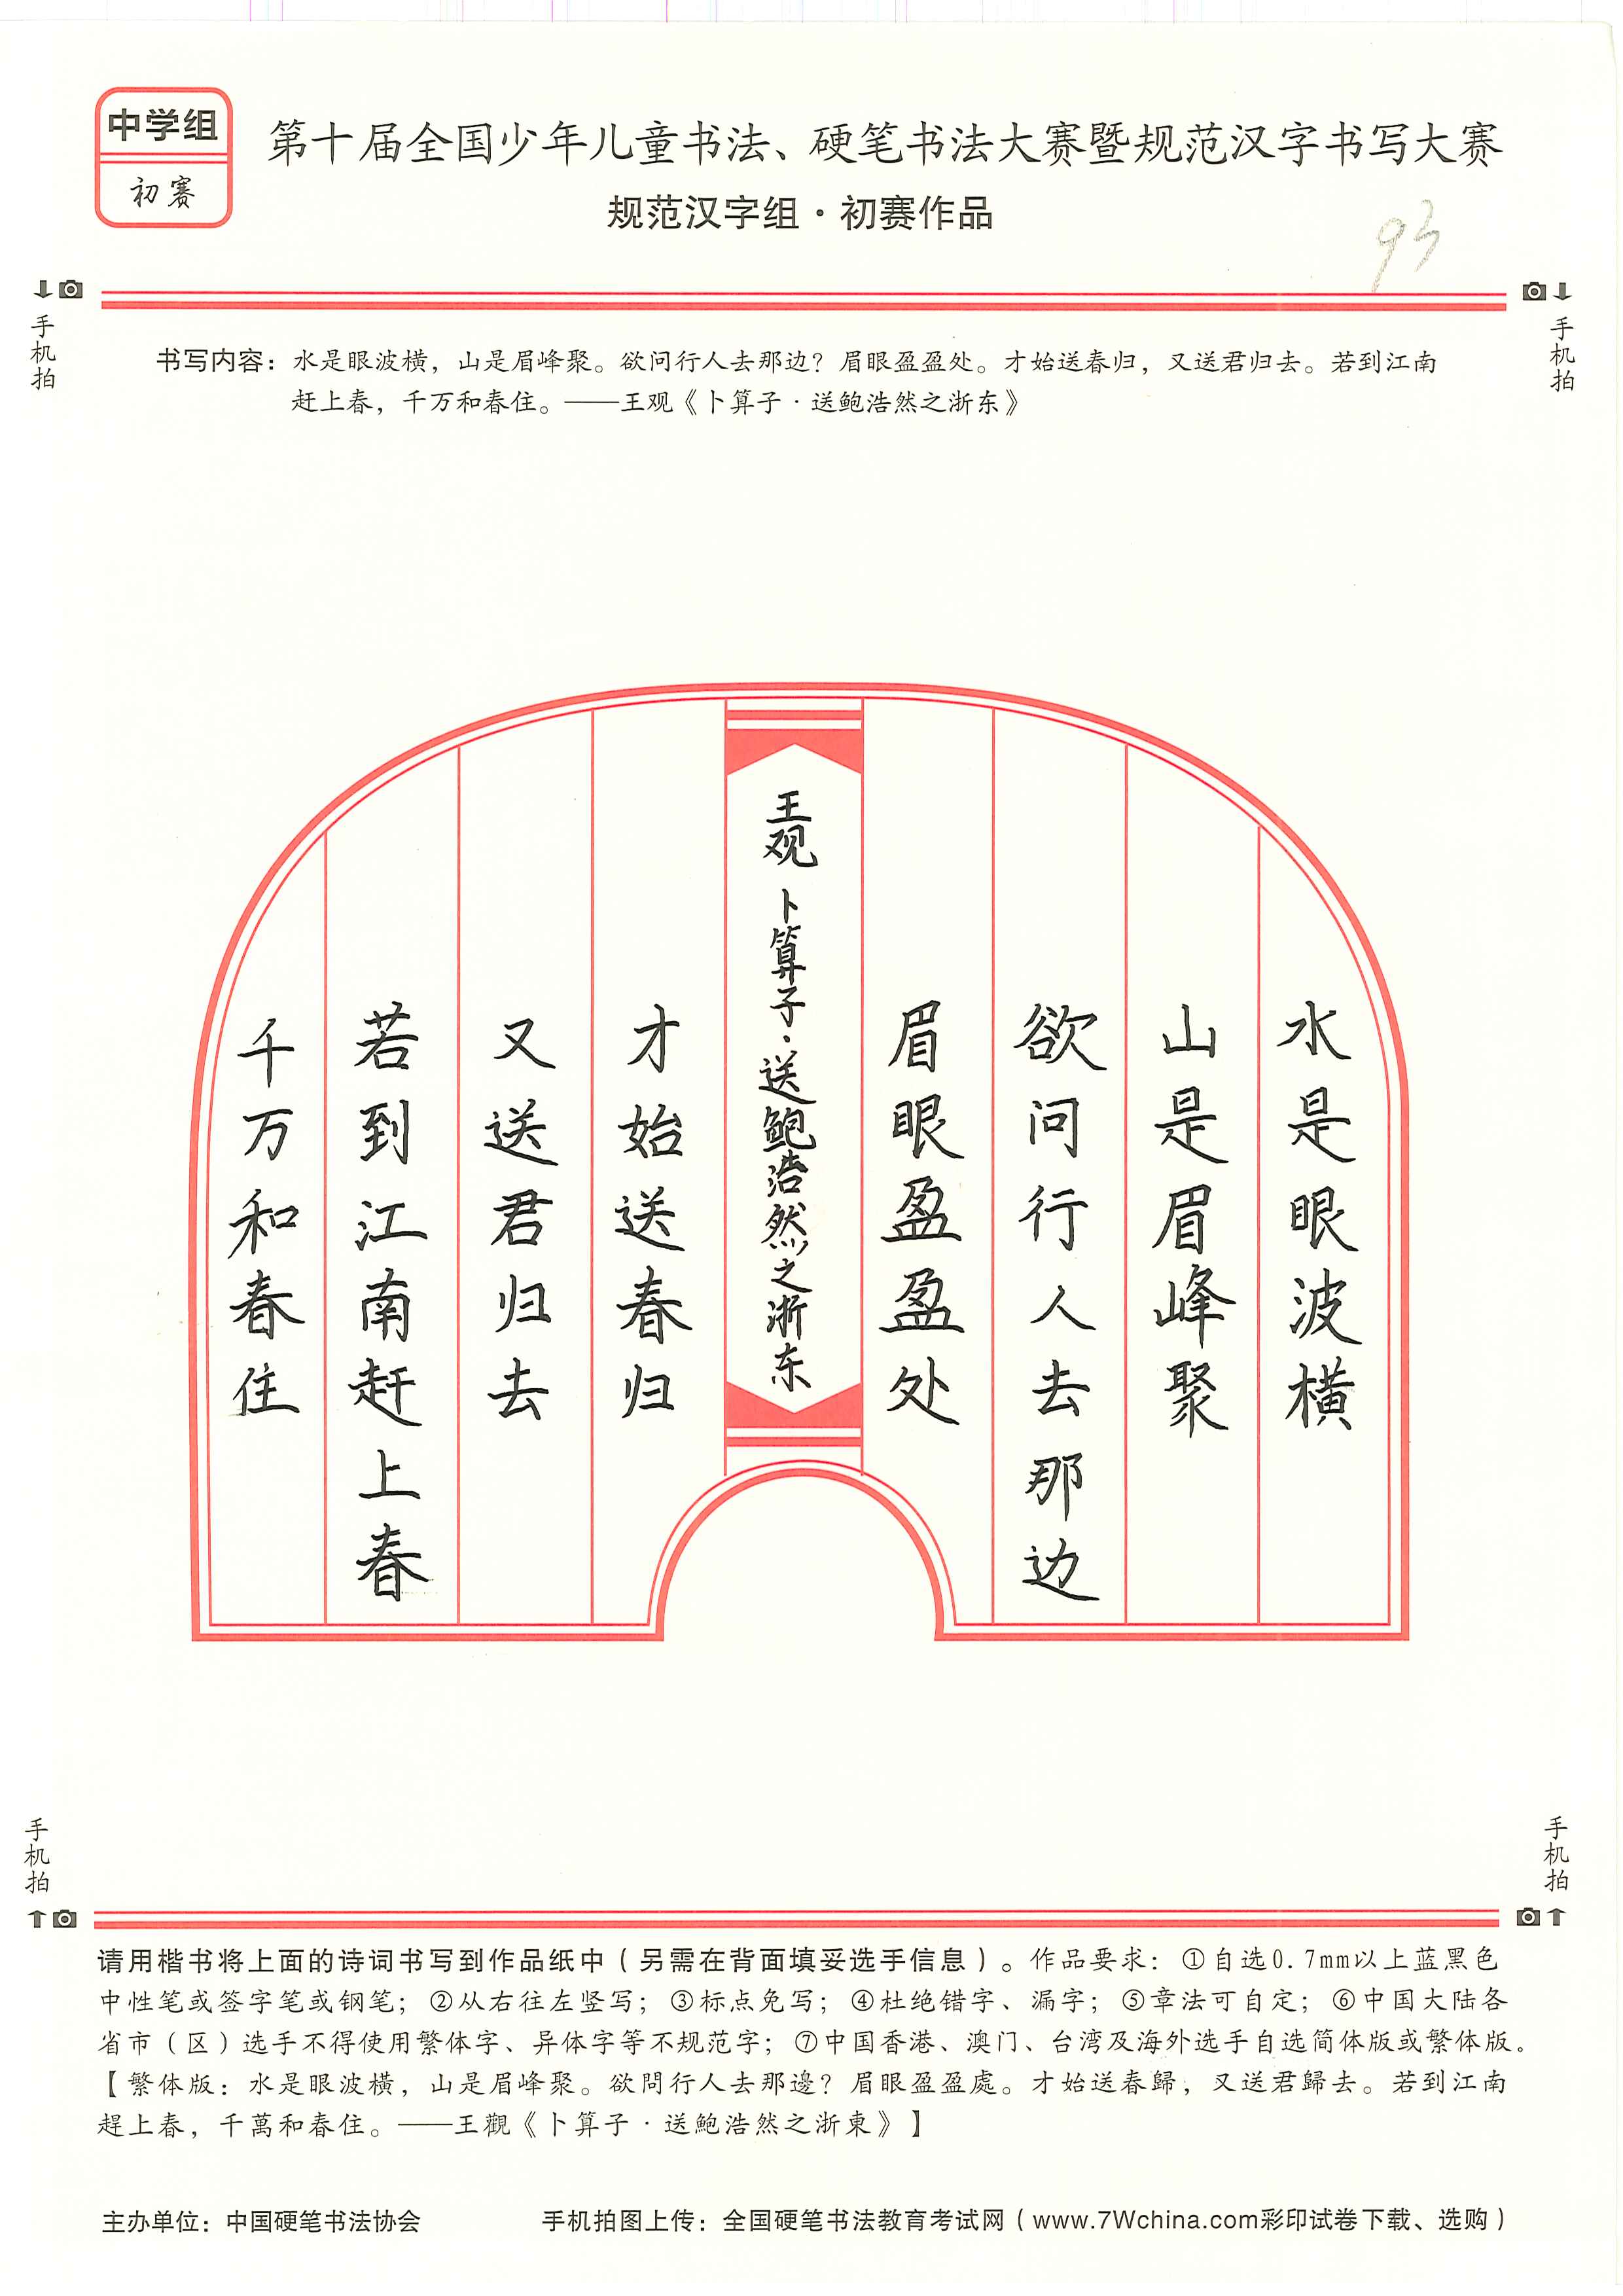 中学组
初赛
第十届全国少年儿童书法、硬笔书法大赛暨规范汉字书写大赛
规范汉字组·初赛作品
93
手机拍
手机拍
书写内容：水是眼波横，山是眉峰聚。欲问行人去那边？眉眼盈盈处。才始送春归，又送君归去。若到江南
赶上春，千万和春住。——王观《卜算子·送鲍浩然之浙东》
水是眼波横
山是眉峰聚
欲问行人去那边
眉眼盈盈处
王观 卜算子·送鲍浩然之浙东
才始送春归
又送君归去
若到江南赶上春
千万和春住
手机拍
手机拍
请用楷书将上面的诗词书写到作品纸中（另需在背面填妥选手信息）。作品要求：①自选0.7mm以上蓝黑色
中性笔或签字笔或钢笔；②从右往左竖写；③标点免写；④杜绝错字、漏字；⑤章法可自定；⑥中国大陆各
省市（区）选手不得使用繁体字、异体字等不规范字；⑦中国香港、澳门、台湾及海外选手自选简体版或繁体版。
【繁体版：水是眼波橫，山是眉峰聚。欲問行人去那邊？眉眼盈盈處。才始送春歸，又送君歸去。若到江南
趕上春，千萬和春住。——王觀《卜算子·送鮑浩然之浙東》】
主办单位：中国硬笔书法协会
手机拍图上传：全国硬笔书法教育考试网（www.7Wchina.com彩印试卷下载、选购）